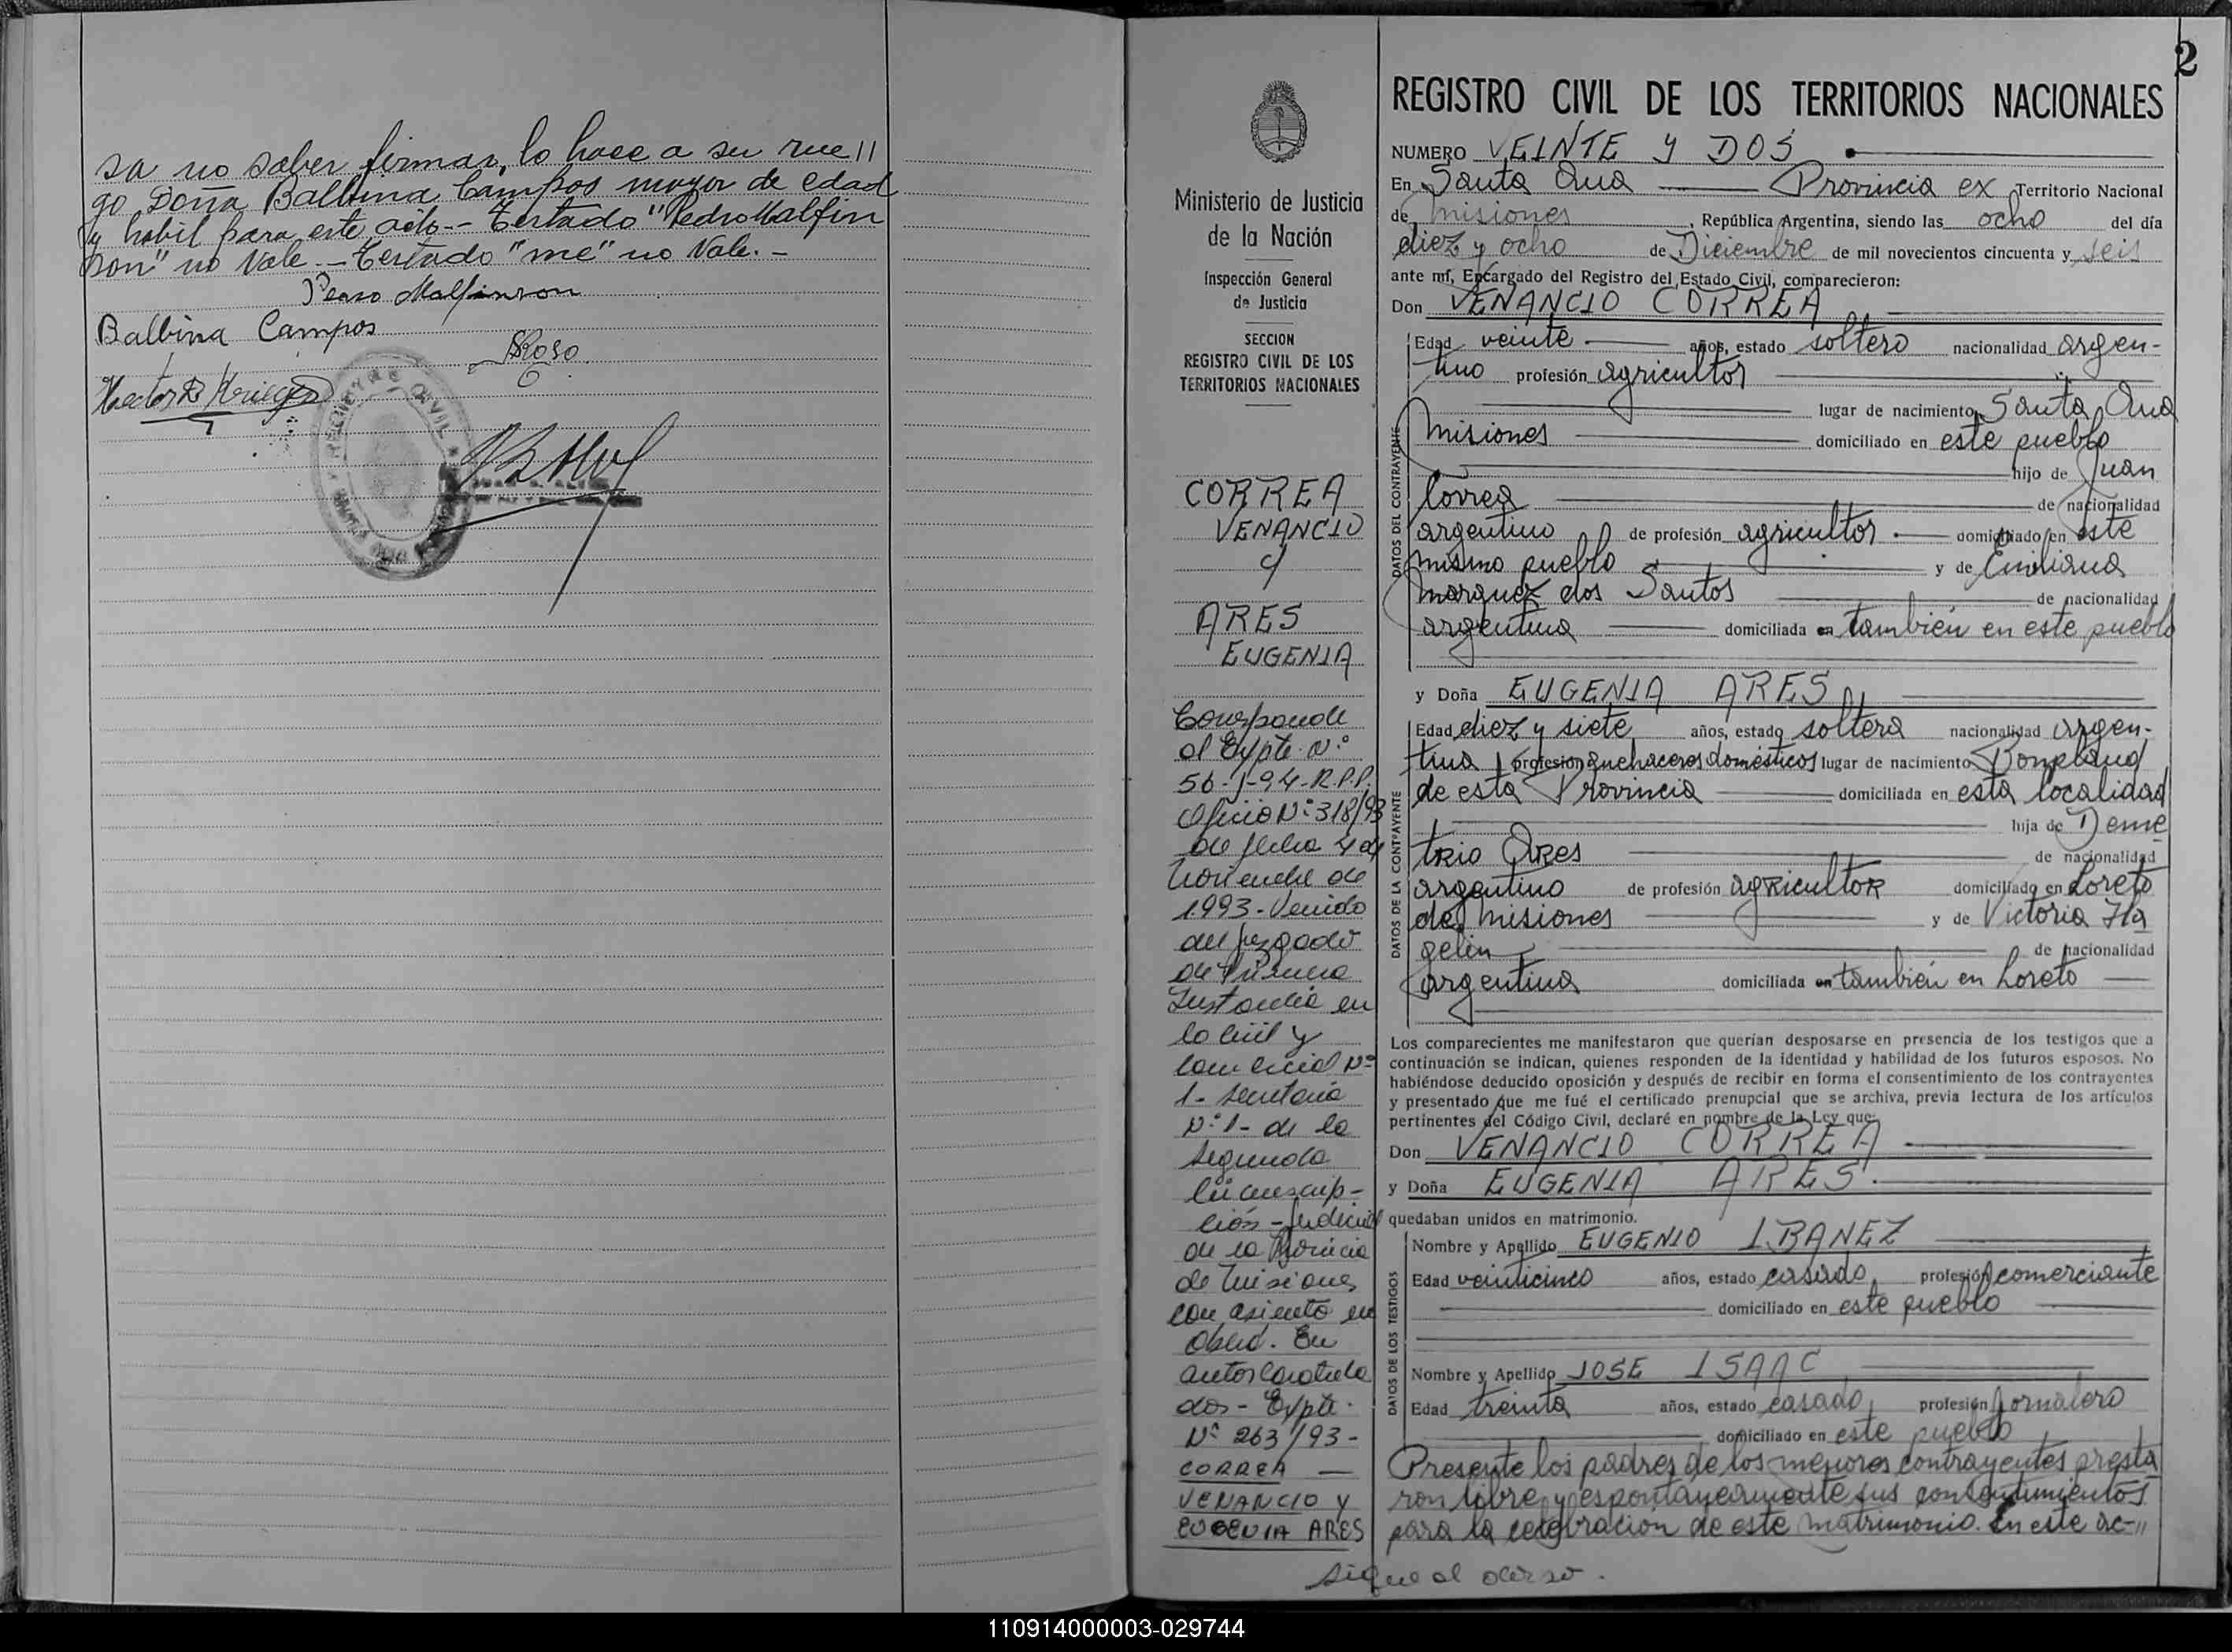 sa no saber firmar, lo hace a su rue//
go Doña Balbina Campos mayor de edad
y habil para este acto.- Testado "Pedro Malfin
son" no Vale.- Testado "me" no Vale.-
Pedro Malfinson
Balbina Campos
Hector R Krieger
REGISTRO CIVIL
2
REGISTRO CIVIL DE LOS TERRITORIOS NACIONALES
Ministerio de Justicia
de la Nación
Inspección General
de Justicia
SECCION
REGISTRO CIVIL DE LOS
TERRITORIOS NACIONALES
CORREA
VENANCIO
c/
ARES
EUGENIA
Corresponde
al Expte. N.°
56-J-94-R.P.P.
Oficio N° 318/93
de fecha 4 de
Noviembre de
1.993- Venido
del Juzgado
de Primera
Instancia en
lo Civil y
Comercial N°
1- Secretaria
N° 1- de la
Segunda
Circunscrip-
ción - Judicial
de la Provincia
de Misiones
con asiento en
Oberá. En
autos Caratula
dos - Expte.
N° 263/93-
CORREA —
VENANCIO Y
EUGENIA ARES
NUMERO VEINTE Y DOS
En Santa Ana — Provincia ex Territorio Nacional
de Misiones, República Argentina, siendo las ocho del día
diez y ocho de Diciembre de mil novecientos cincuenta y seis
ante mí, Encargado del Registro del Estado Civil, comparecieron:
Don VENANCIO CORREA
DATOS DEL CONTRAYENTE
Edad veinte años, estado soltero nacionalidad argen-
tino profesión agricultor
lugar de nacimiento Santa Ana
Misiones domiciliado en este pueblo
hijo de Juan
Correa de nacionalidad
argentino de profesión agricultor domiciliado en este
mismo pueblo y de Emiliana
Marquez dos Santos de nacionalidad
argentina domiciliada en también en este pueblo
y Doña EUGENIA ARES
DATOS DE LA CONTRAYENTE
Edad diez y siete años, estado soltera nacionalidad argen-
tina profesión quehaceres domésticos lugar de nacimiento Bonpland
de esta Provincia domiciliada en esta localidad
hija de Deme
trio Ares de nacionalidad
argentino de profesión agricultor domiciliado en Loreto
de Misiones y de Victoria
de nacionalidad
argentina domiciliada en también en Loreto
Los comparecientes me manifestaron que querían desposarse en presencia de los testigos que a
continuación se indican, quienes responden de la identidad y habilidad de los futuros esposos. No
habiéndose deducido oposición y después de recibir en forma el consentimiento de los contrayentes
y presentado que me fué el certificado prenupcial que se archiva, previa lectura de los artículos
pertinentes del Código Civil, declaré en nombre de la Ley que:
Don VENANCIO CORREA
y Doña EUGENIA ARES
quedaban unidos en matrimonio.
DATOS DE LOS TESTIGOS
Nombre y Apellido EUGENIO IBANEZ
Edad veinticinco años, estado casado profesión comerciante
domiciliado en este pueblo
Nombre y Apellido JOSE ISAAC
Edad treinta años, estado casado profesión jornalero
domiciliado en este pueblo
Presente los padres de los menores contrayentes presta
ron libre y espontáneamente sus consentimientos
para la celebración de este matrimonio. En este ac-//
Sigue al dorso.
110914000003-029744